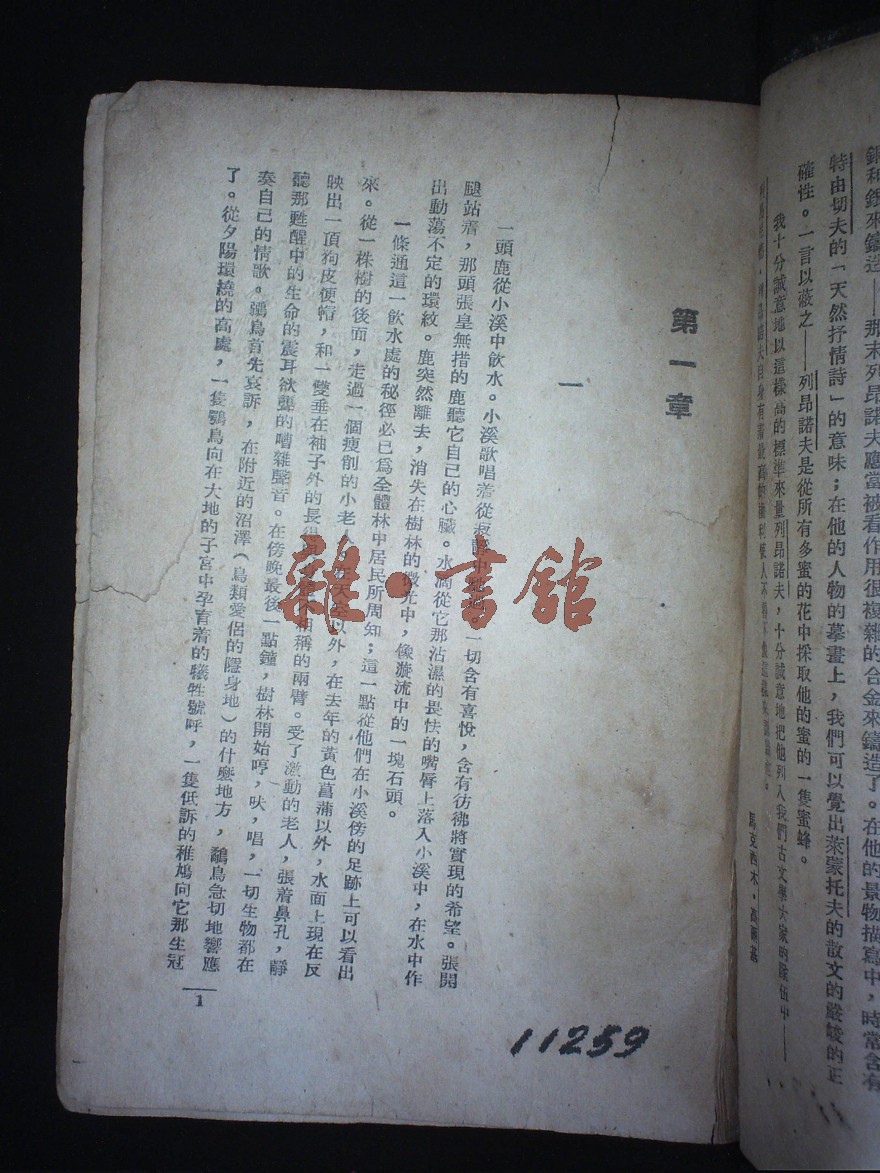 銅和銀來鑄造——那末列昂諾夫應當被看作用很複雜的合金來鑄造了。在他的景物描寫中，時常含有
特由切夫的「天然抒情詩」的意味；在他的人物的摹畫上，我們可以覺出萊蒙托夫的散文的嚴峻的正
確性。一言以蔽之——列昂諾夫是從所有多蜜的花中採取他的蜜的一隻蜜蜂。
我十分誠意地以這樣高的標準來量列昂諾夫，十分誠意地把他列入我們古文學大家的隊伍中——
馬克西木·高爾基
第一章
一
一頭鹿從小溪中飲水。小溪歌唱着從 一切含有喜悅，含有彷彿將實現的希望。張開
腿站着，那頭張皇無措的鹿聽它自己的心臟。水滴從它那沾濕的畏怯的嘴唇上落入小溪中，在水中作
出動蕩不定的環紋。鹿突然離去，消失在樹林的微光中，像漩流中的一塊石頭。
一條通這一飲水處的秘徑必已爲全體林中居民所周知；這一點從他們在小溪傍的足跡上可以看出
來。從一株樹的後面，走過一個瘦削的小老人 以外，在去年的黃色菖蒲以外，水面上現在反
映出一頂狗皮便帽，和一雙垂在袖子外的長得 相稱的兩臂。受了激動的老人，張着鼻孔，靜
聽那甦醒中的生命的震耳欲聾的嘈雜聲音。在傍晚最後一點鐘，樹林開始哼，吠，唱，一切生物都在
奏自己的情歌。鷭鳥首先哀訴，在附近的沼澤（鳥類愛侶的隱身地）的什麼地方，鷸鳥急切地響應
了。從夕陽環繞的高處，一隻鶚鳥向在大地的子宮中孕育着的犧牲號呼，一隻低訴的稚鳩向它那生冠
1
11259
雜·書館